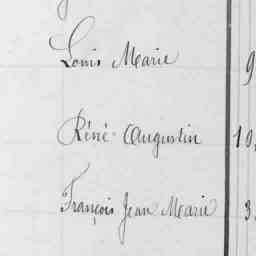 Louis Marie 9
Réné Augustin 10
François Jean Marie 3